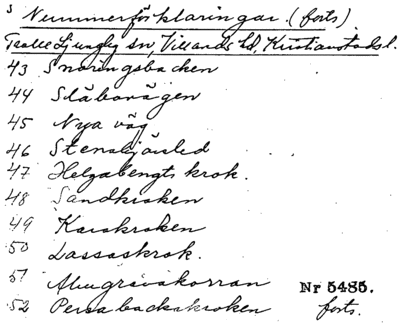 3 Nummerförklaringar. (forts)
Tralle Ljungby sn, Villands hd, Kristianstads l.
43 Snaringsbacken
44 Släbovägen
45 Nya väg
46 Stenskjärsled
47 Helgabengts krok.
48 Sandkroken
49 Karskroken
50 Lassaskrok.
51 Almgravakorran Nr 5485.
52 Persabackakroken forts.